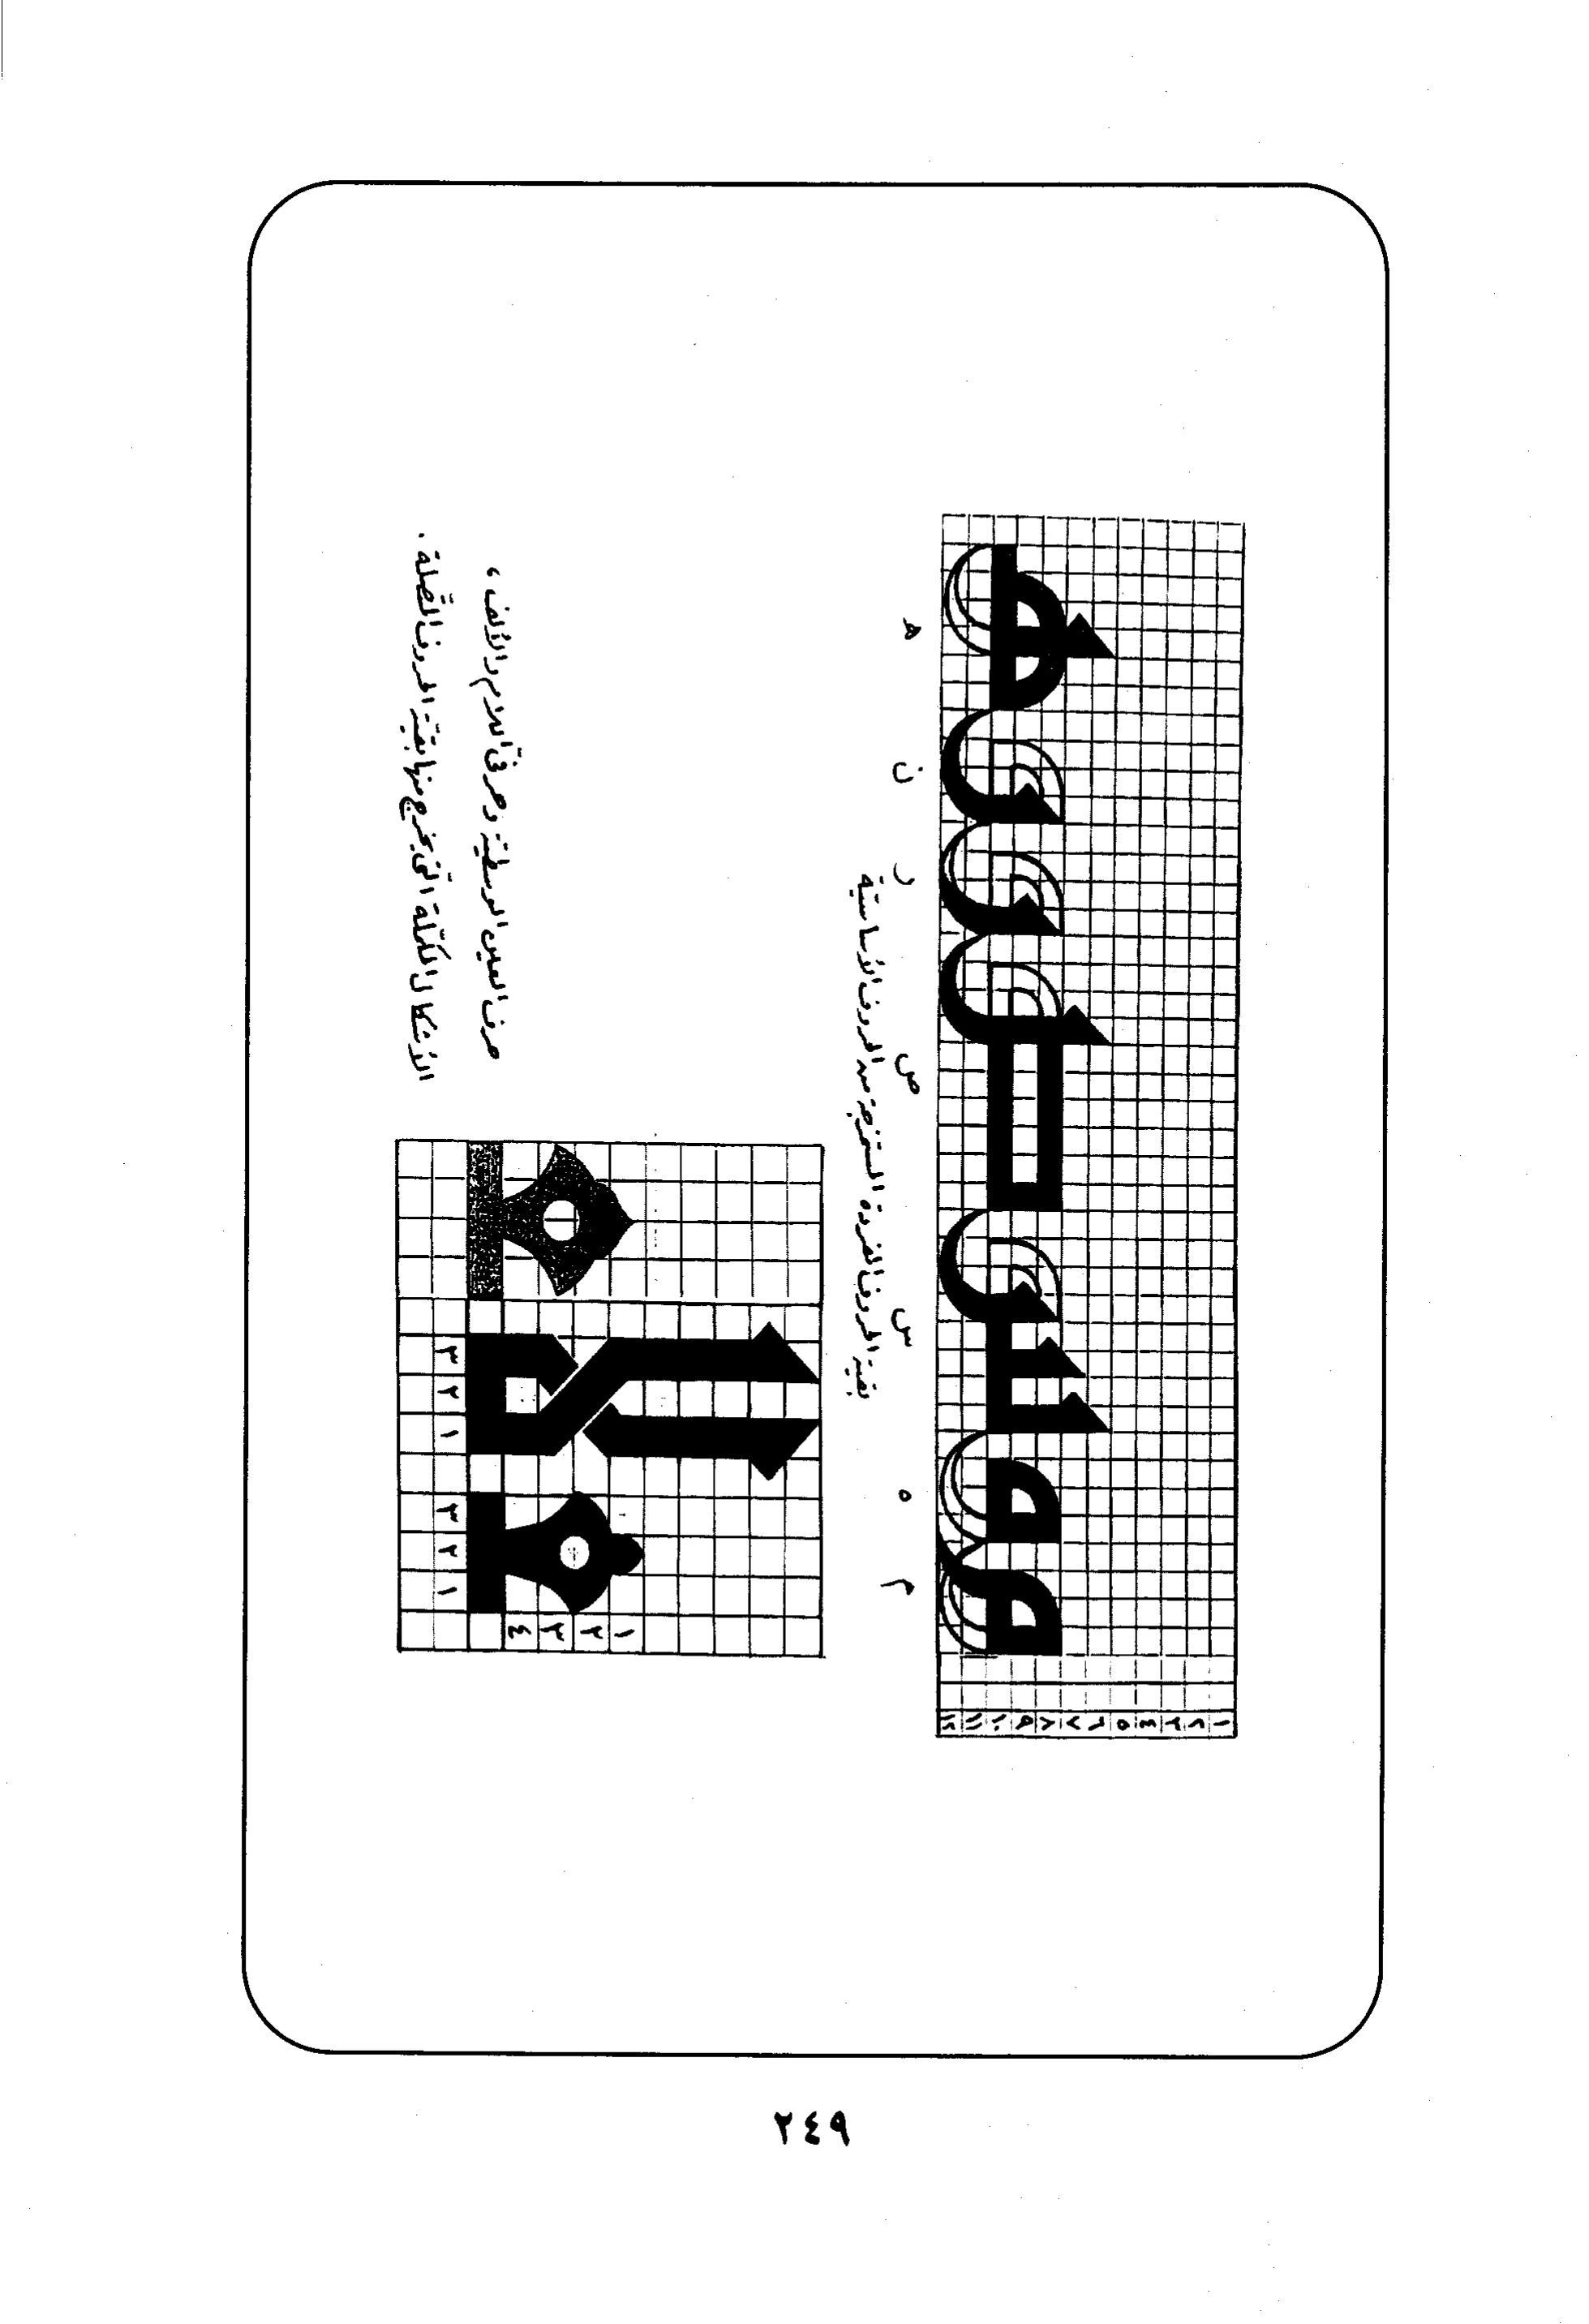 ١ ٢ ٣ ٤ ٥ ٦ ٧ ٨ ٩ ١٠ ١١ ١٢
م ه س ص ر ن ه
بقية الحروف المفردة المستخرجة من الحروف الأساسية
١ ٢ ٣ ٤
١ ٢ ٣ ١ ٢ ٣
حرف العين الوسطية وحرفي اللام والألف ،
الأشكال المكملة التي تخرج منها بقية الحروف المتصلة .
٢٤٩